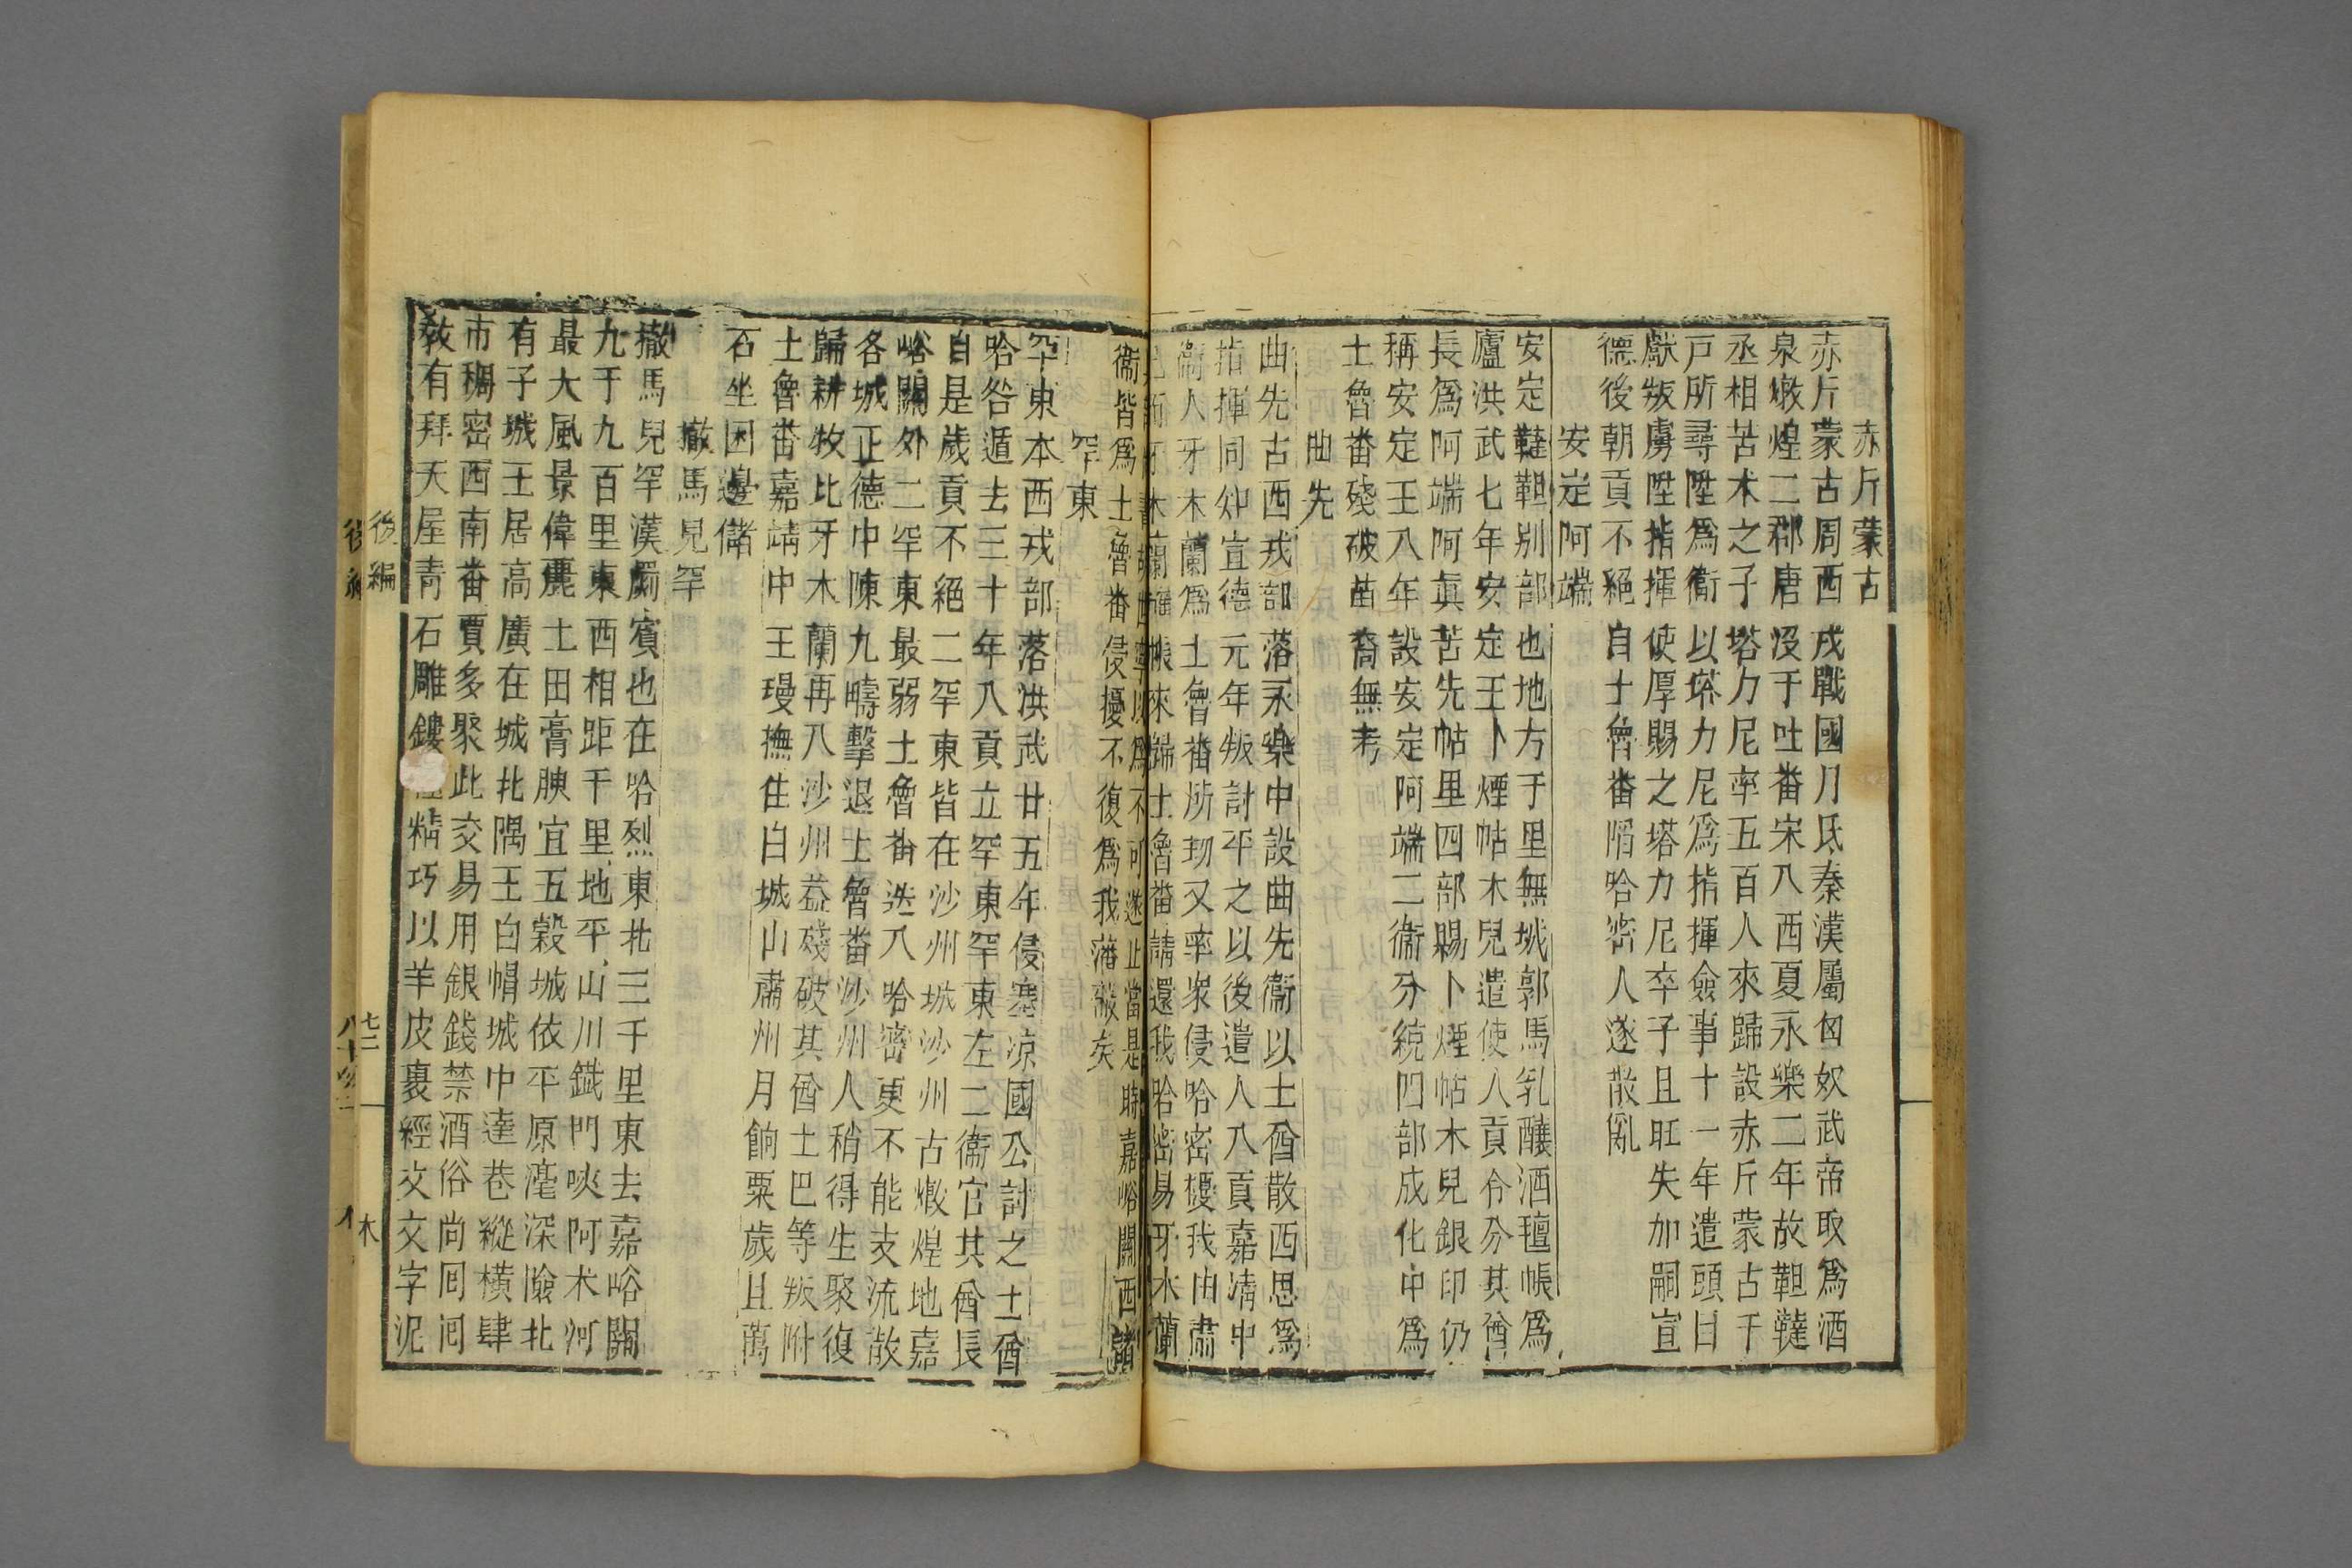 赤斤蒙古
赤斤蒙古周西戎戰國月氐秦漢屬匈奴武帝取爲酒
泉燉煌二郡唐沒于吐番宋入西夏永樂二年故韃靼
丞相苦木之子塔力尼率五百人來歸設赤斤蒙古千
戸所尋陞爲衞以塔力尼爲指揮僉事十一年遣頭目
獻叛虜陞指揮使厚賜之塔力尼卒子且旺失加嗣宣
德後朝貢不絕自土魯番陷哈密人遂散亂
安定阿端
安定韃靼別部也地方千里無城郭馬乳釀酒氊帳爲
廬洪武七年安定王卜煙帖木兒遣使入貢令分其酋
長爲阿端阿眞苦先帖里四部賜卜煙帖木兒銀印仍
稱安定王八年設安定阿端二衞分統四部成化中爲
土魯番殘破苗裔無考
曲先
曲先古西戎部落永樂中設曲先衞以土酋散西思爲
指揮同知宣德元年叛討平之以後遣人入貢嘉靖中
衞人牙木蘭爲土魯番所刼又率衆侵哈密擾我甘肅
已而牙木蘭 帳來歸土魯番請還我哈密易牙木蘭
書胡世寧以爲不可遂止當是時嘉峪關西諸
衞皆爲土魯番侵擾不復爲我藩蔽矣
罕東
罕東本西戎部落洪武廿五年侵塞凉國公討之土酋
哈咎遁去三十年入貢立罕東罕東左二衞官其酋長
自是歲貢不絕二罕東皆在沙州城沙州古燉煌地嘉
峪關外二罕東最弱土魯番迭入哈密更不能支流散
各城正德中陳九疇擊退土魯番沙州人稍得生聚復
歸耕牧比牙木蘭再入沙州益殘破其酋土巴等叛附
土魯番嘉靖中王瑷撫住白城山肅州月餉粟歲且萬
石坐困邊儲
撒馬兒罕
撒馬兒罕漢罽賓也在哈烈東北三千里東去嘉峪關
九千九百里東西相距千里地平山川鐵門峽阿木河
最大風景偉麗土田膏腴宜五穀城依平原濠深險北
有子城王居高廣在城北隅王白帽城中達巷縱橫肆
市稠密西南番賈多聚此交易用銀錢禁酒俗尚囘囘
敎有拜天屋青石雕鏤 精巧以羊皮裹經文文字泥
後編
七二
木